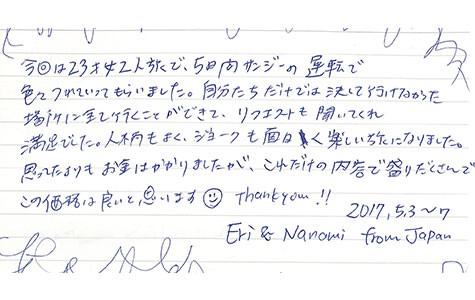 今回は23才女2人旅で、5日間サンジーの運転で
色々つれていってもらいました。自分たちだけでは決して行けなかった
場所に全て行くことができて、リクエストも聞いてくれ
満足でした。人柄もよく、ジョークも面白く楽しい旅になりました。
思ったよりもお金はかかりましたが、これだけの内容で盛りだくさんで
この価格は良いと思います☺ Thankyou!!
2017,5.3~7
Eri & Nanomi from Japan